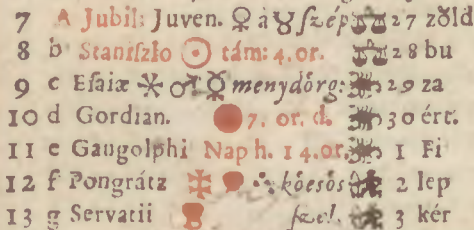 7 A Jubil: Juven. ♀ à ☿ ſzép ♎ 27 zöld
8 b Staniſzlo ☉ tám: 4. or. ♎ 28 bu
9 c Eſaiæ ⚹ ♂ ☿ menydörg: ♏ 29 za
10 d Gordian. ● 7. or. d. ♏ 30 ért.
11 e Gangolphi Nap h. 14. or. ♏ 1 Fi
12 f Pongrátz köesös 2 lep
13 g Servatii ſzel. 3 kér